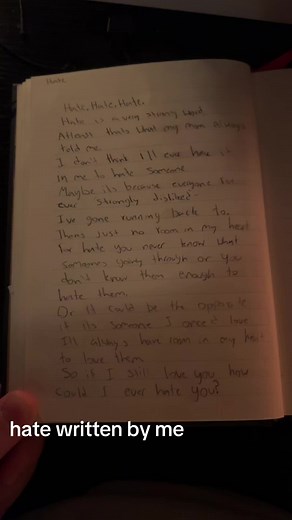 Hate
Hate, Hate, Hate.
Hate is a very strong word
Atleast thats what my mom always
told me.
I don't think I'll ever have it
in me to hate someone
Maybe its because everyone I've
ever strongly disliked
I've gone running back to.
Theres just no room in my heart
for hate you never know what
someones going through or you
don't know them enough to
hate them.
Or it could be the opposite
if its someone I once love
I'll always have room in my heart
to love them.
So if I still love you how
could I ever hate you?
hate written by me